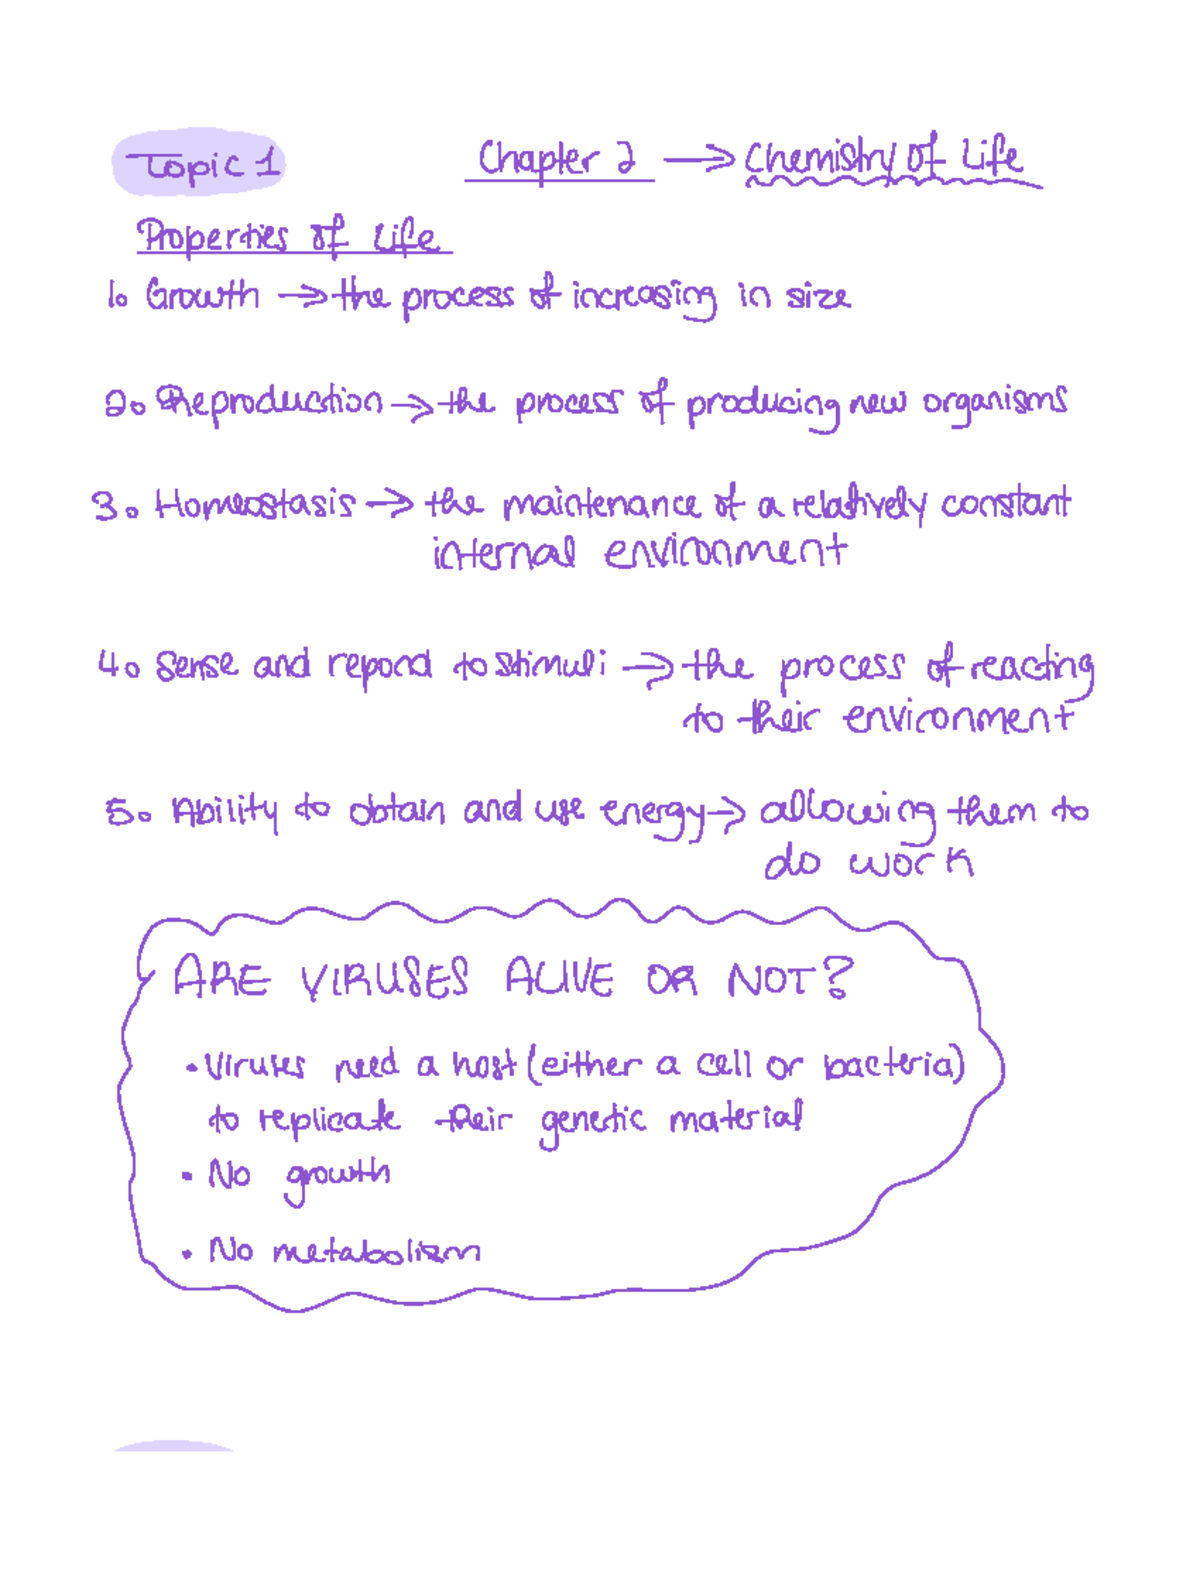 Topic 1
Chapter 2 → Chemistry of Life
Properties of Life
1. Growth → the process of increasing in size
2. Reproduction → the process of producing new organisms
3. Homeostasis → the maintenance of a relatively constant
internal environment
4. Sense and repond to stimuli → the process of reacting
to their environment
5. Ability to obtain and use energy → allowing them to
do work
ARE VIRUSES ALIVE OR NOT?
• Viruses need a host (either a cell or bacteria)
to replicate their genetic material
• No growth
• No metabolism